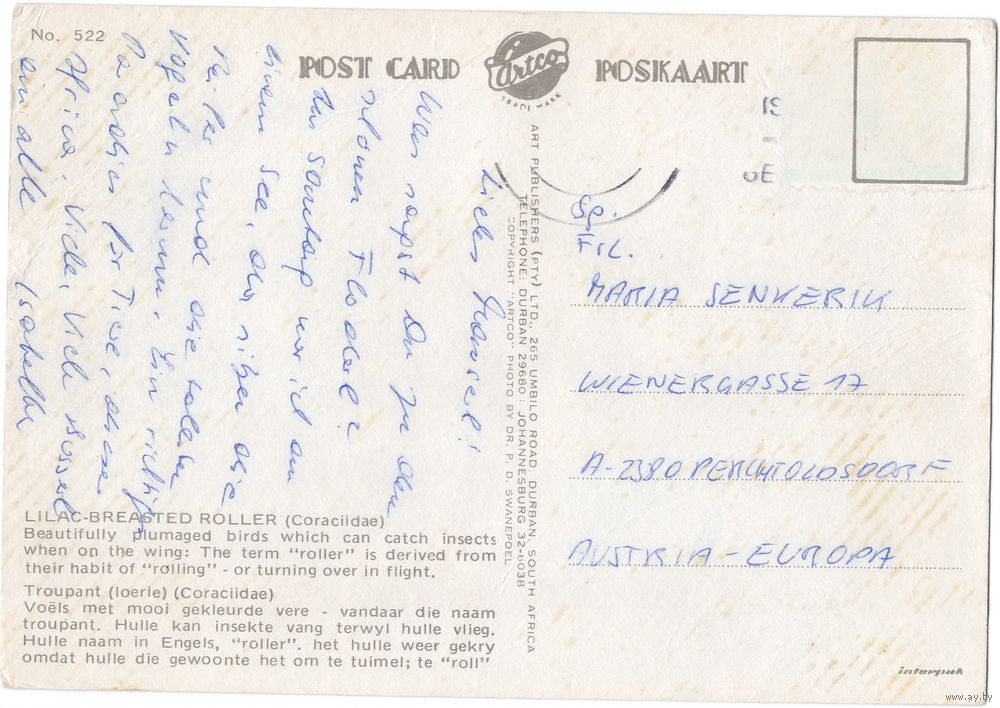 No. 522
POST CARD
artco
TRADE MARK
POSKAART
Was sagst Du zu den
Floderl?
Sonntag war ich an
einem See, da sitzen die
und die tollen
Vögeln herum. Ein
Paradies für Tiere, dieses
Afrika. Viele, Viele Busserl
an alle
ART PUBLISHERS (PTY) LTD., 265 UMBILO ROAD, DURBAN, SOUTH AFRICA
TELEPHONE: DURBAN 29680 : JOHANNESBURG 32-6038
COPYRIGHT "ARTCO" PHOTO BY DR. P. D. SWANEPOEL
LILAC-BREASTED ROLLER (Coraciidae)
Beautifully plumaged birds which can catch insects
when on the wing: The term "roller" is derived from
their habit of "rolling" - or turning over in flight.
Troupant (loerie) (Coraciidae)
Voëls met mooi gekleurde vere - vandaar die naam
troupant. Hulle kan insekte vang terwyl hulle vlieg.
Hulle naam in Engels, "roller". het hulle weer gekry
omdat hulle die gewoonte het om te tuimel; te "roll"
FRL.
MARIA SENKERIK
WIENERGASSE 17
A-2380 PERCHTOLDSDORF
AUSTRIA - EUROPA
interpark
www.ay.by